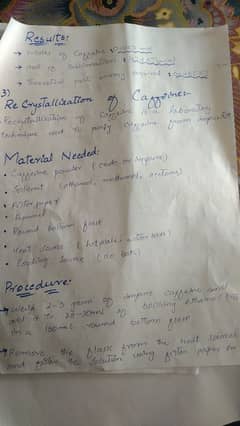 Results:
→ Moles of Caffeine
→ rate of Sublimation
→
3)
Re Crystallization of Caffeine:-
Recrystallization of Caffeine is a laboratory
technique used to purify caffeine from impurities
Material Needed:
• Caffeine powder (crude or impure)
• Solvent (ethanol, methanol, acetone)
• Filter paper
• Funnel
• Round bottom flask
• Heat source (hotplate, water bath)
• Cooling source (ice bath)
Procedure:-
→ Weigh 2-3 gram of impure caffeine and
add it to 20-30ml of boiling ethanol
in a 100ml round bottom flask
→ Remove the flask from the heat source
and filter the solution using filter paper